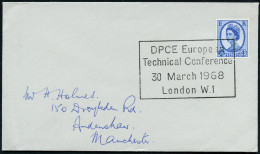 DPCE Europe
Technical Conference
30 March 1968
London W.1
Mr H. Holmes.
150 Droylsden Rd.
Audenshaw.
Manchester